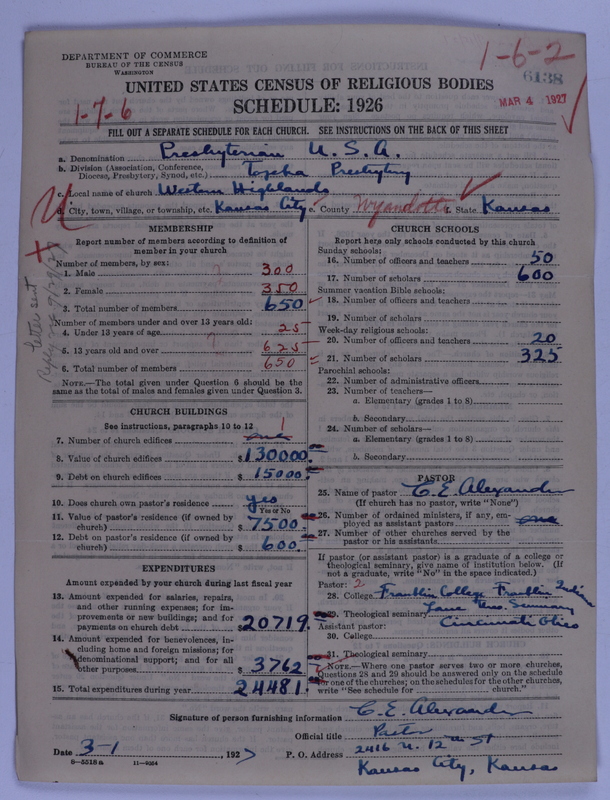 DEPARTMENT OF COMMERCE
BUREAU OF THE CENSUS
WASHINGTON
1-6-2
6138
MAR 4 1927
UNITED STATES CENSUS OF RELIGIOUS BODIES
SCHEDULE: 1926
1-7-6
FILL OUT A SEPARATE SCHEDULE FOR EACH CHURCH. SEE INSTRUCTIONS ON THE BACK OF THIS SHEET
a. Denomination Presbyterian U.S.A.
b. Division (Association, Conference, Diocese, Presbytery, Synod, etc.) Topeka Presbytery
c. Local name of church Western Highlands
d. City, town, village, or township, etc. Kansas City e. County Wyandotte f. State Kansas
MEMBERSHIP
Report number of members according to definition of member in your church
Number of members, by sex:
1. Male 300
2. Female 350
3. Total number of members 650
Number of members under and over 13 years old:
4. Under 13 years of age 25
5. 13 years old and over 625
6. Total number of members 650
NOTE.—The total given under Question 6 should be the same as the total of males and females given under Question 3.
Letter sent
CHURCH BUILDINGS
See instructions, paragraphs 10 to 12
7. Number of church edifices one 1
8. Value of church edifices $130000.
9. Debt on church edifices $15000.
10. Does church own pastor's residence? yes
Yes or No
11. Value of pastor's residence (if owned by church) $7500.
12. Debt on pastor's residence (if owned by church) $600.
EXPENDITURES
Amount expended by your church during last fiscal year
13. Amount expended for salaries, repairs, and other running expenses; for improvements or new buildings; and for payments on church debt $20719.
14. Amount expended for benevolences, including home and foreign missions; for denominational support; and for all other purposes $3762
15. Total expenditures during year 24481.
CHURCH SCHOOLS
Report here only schools conducted by this church
Sunday schools:
16. Number of officers and teachers 50
17. Number of scholars 600
Summer vacation Bible schools:
18. Number of officers and teachers
19. Number of scholars
Week-day religious schools:
20. Number of officers and teachers 20
21. Number of scholars 325
Parochial schools:
22. Number of administrative officers
23. Number of teachers—
a. Elementary (grades 1 to 8)
b. Secondary
24. Number of scholars—
a. Elementary (grades 1 to 8)
b. Secondary
PASTOR
25. Name of pastor C. E. Alexander
(If church has no pastor, write "None")
26. Number of ordained ministers, if any, employed as assistant pastors one
27. Number of other churches served by the pastor or his assistants
If pastor (or assistant pastor) is a graduate of a college or theological seminary, give name of institution below. (If not a graduate, write "No" in the space indicated.)
Pastor: 2
28. College Franklin College Franklin Indiana
29. Theological seminary Lane Theo. Seminary
Assistant pastor: Cincinnati Ohio
30. College
31. Theological seminary
NOTE.—Where one pastor serves two or more churches, Questions 28 and 29 should be answered only on the schedule for one of the churches; on the schedules for the other churches, write "See schedule for church."
Signature of person furnishing information C. E. Alexander
Official title Pastor
Date 3-1, 1927 P. O. Address 2416 N. 12th St
Kansas City, Kansas
8—5518a 11—9064